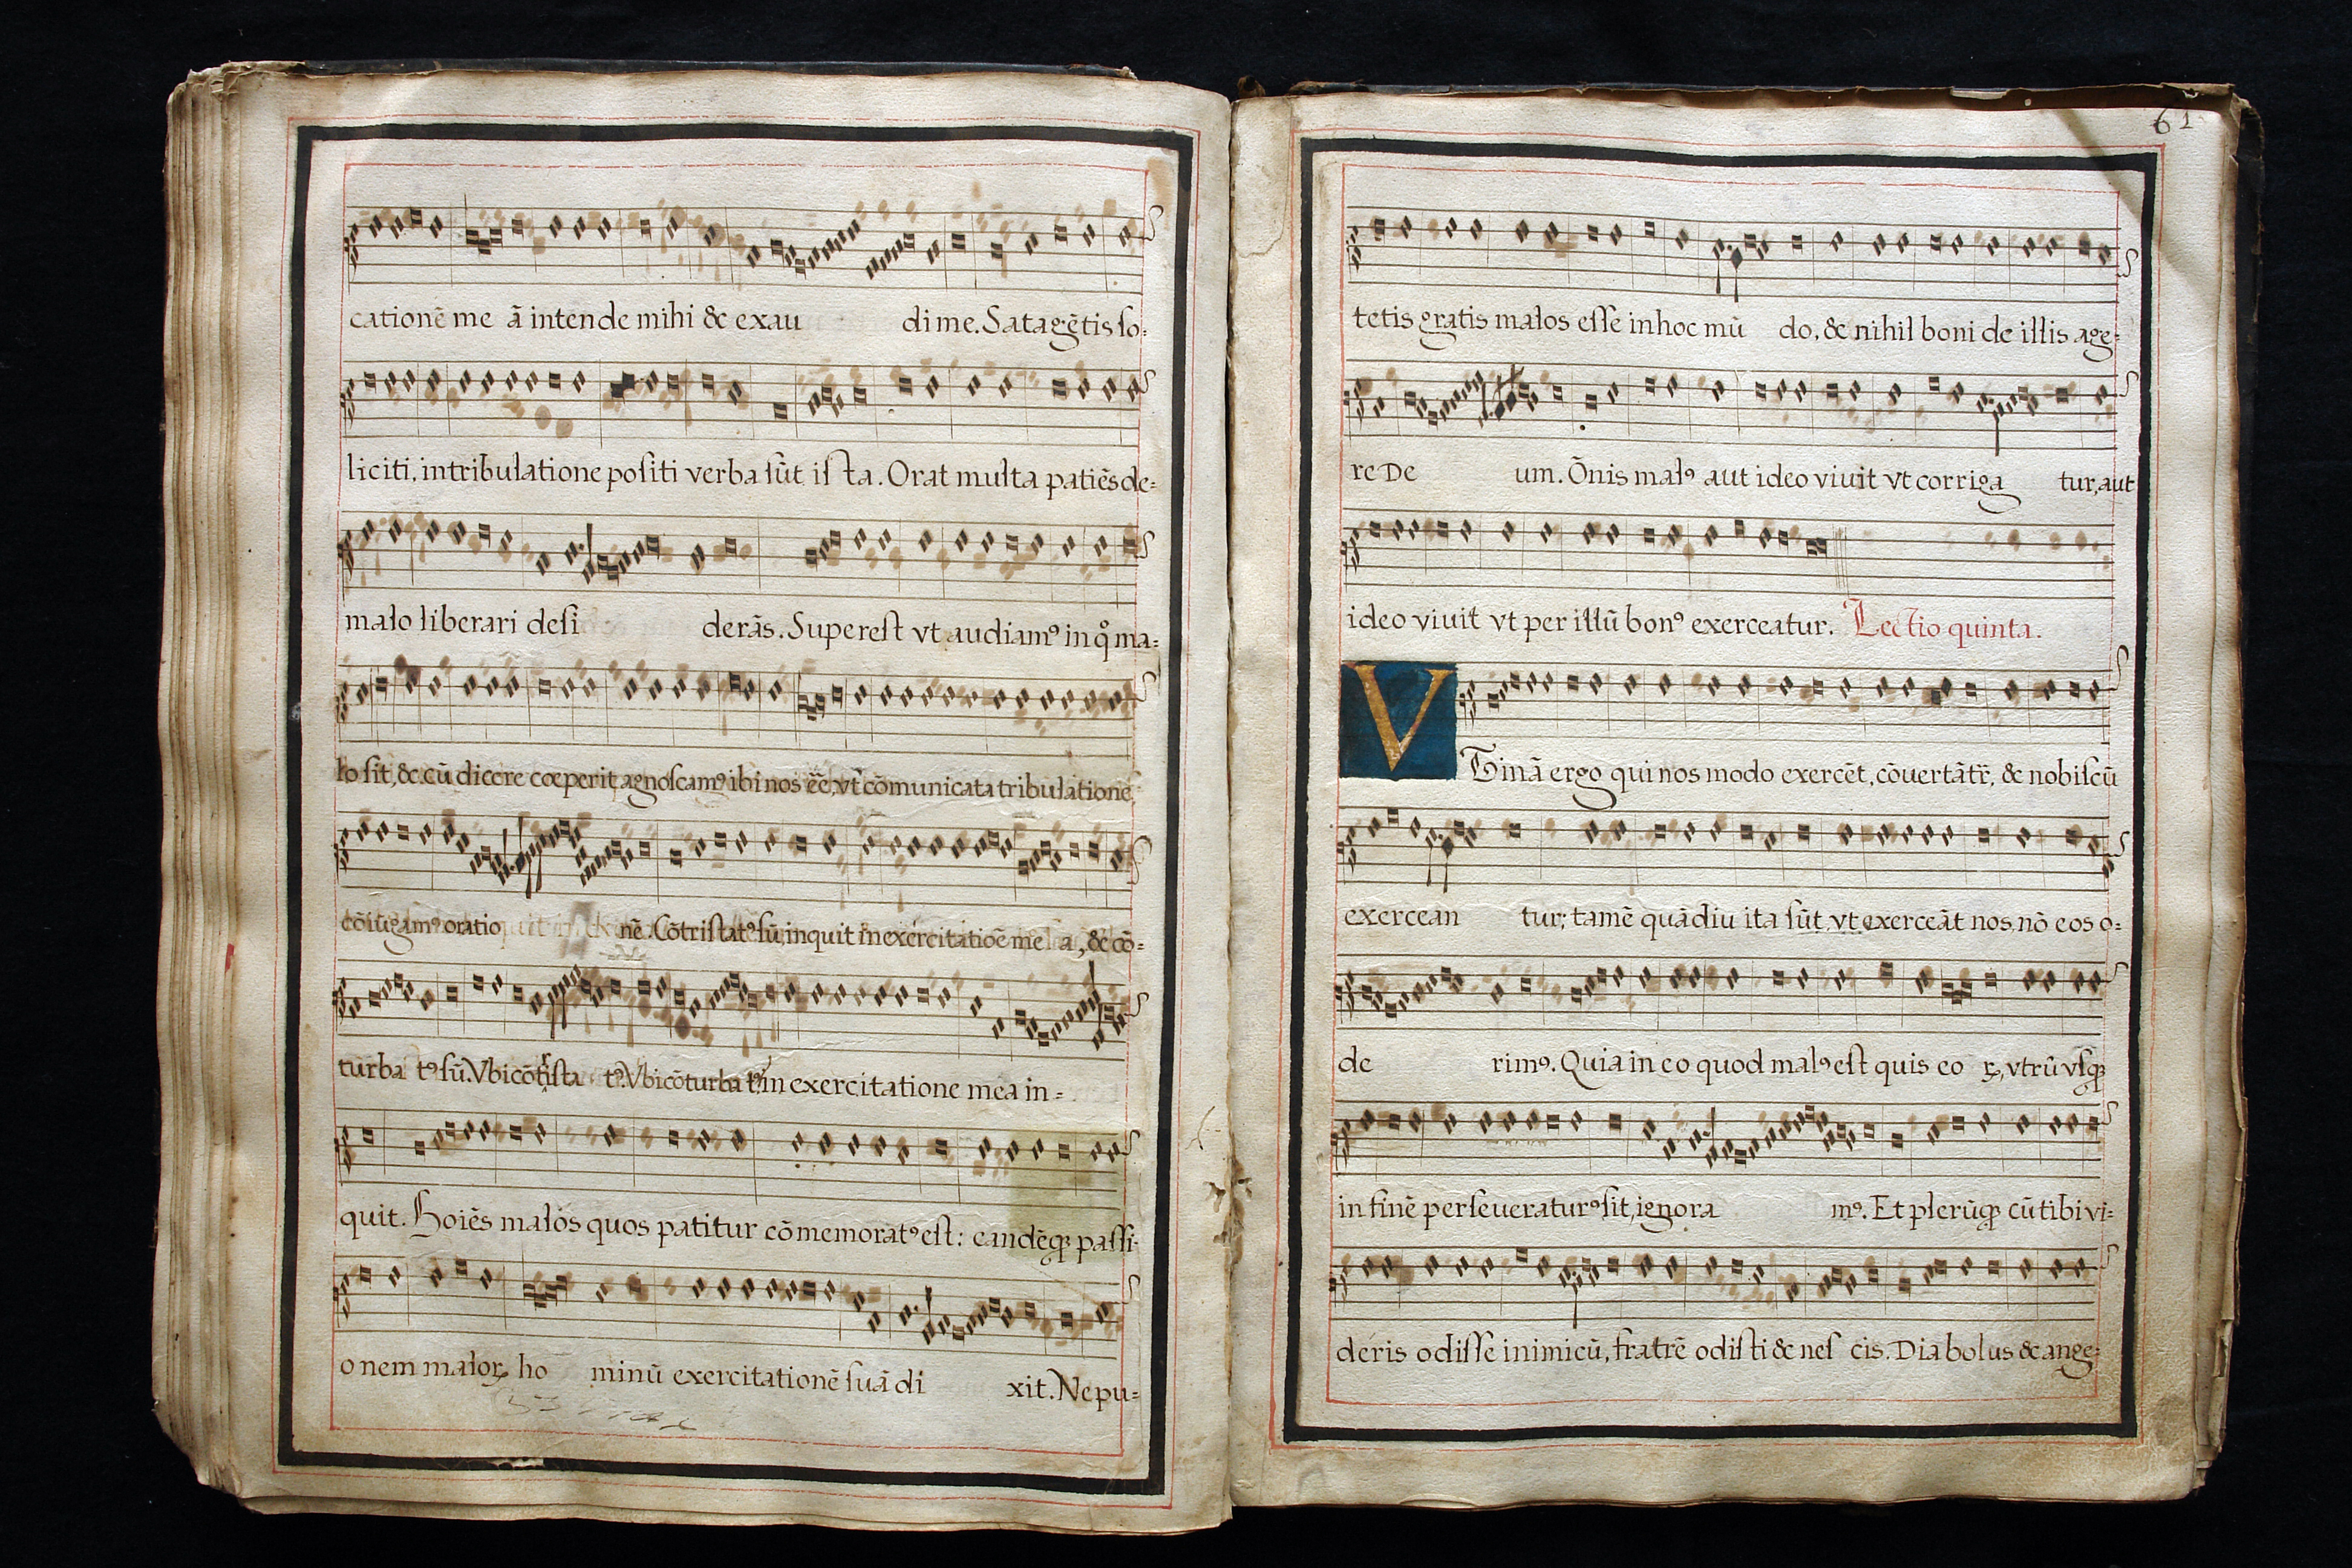 cationē me ā intende mihi & exau di me. Satagētis ſo=
liciti, in tribulatione poſiti verba ſūt iſ ta. Orat multa patiēs, de=
malo liberari deſi derās. Supereſt vt audiamꝰ in q̊ ma=
lo ſit, & cū dicere cœperit, agnoſcamꝰ ibi nos ēē, vt cōmunicata tribulatione,
cōiūgamꝰ oratio nē. Cōtriſtatꝰ ſū, inquit in exercitatiōe me a, & cō=
turba tꝰ ſū. Vbi cōtriſta tꝰ? Vbi cōturba tꝰ? in exercitatione mea in=
quit. Hoiēs malos quos patitur cōmemoratꝰ eſt: eandēq; paſſi-
onem maloꝝ ho minū exercitationē ſuā di xit. Ne pu=
61
tetis gratis malos eſſe in hoc mū do, & nihil boni de illis age=
re De um. Ōnis malꝰ aut ideo viuit vt corriga tur, aut
ideo viuit vt per illū bonꝰ exerceatur. Lectio quinta.
VTinā ergo qui nos modo exercēt, cōuertātr̄, & nobiſcū
exercean tur; tamē quādiu ita ſūt vt exerceāt nos, nō eos o=
de rimꝰ. Quia in eo quod malꝰ eſt quis eo ꝝ, vtrū vſq;
in finē perſeueraturꝰ ſit, ignora mꝰ. Et plerūq; cū tibi vi=
deris odiſſe inimicū, fratrē odiſti & neſ cis. Diabolus & ange=